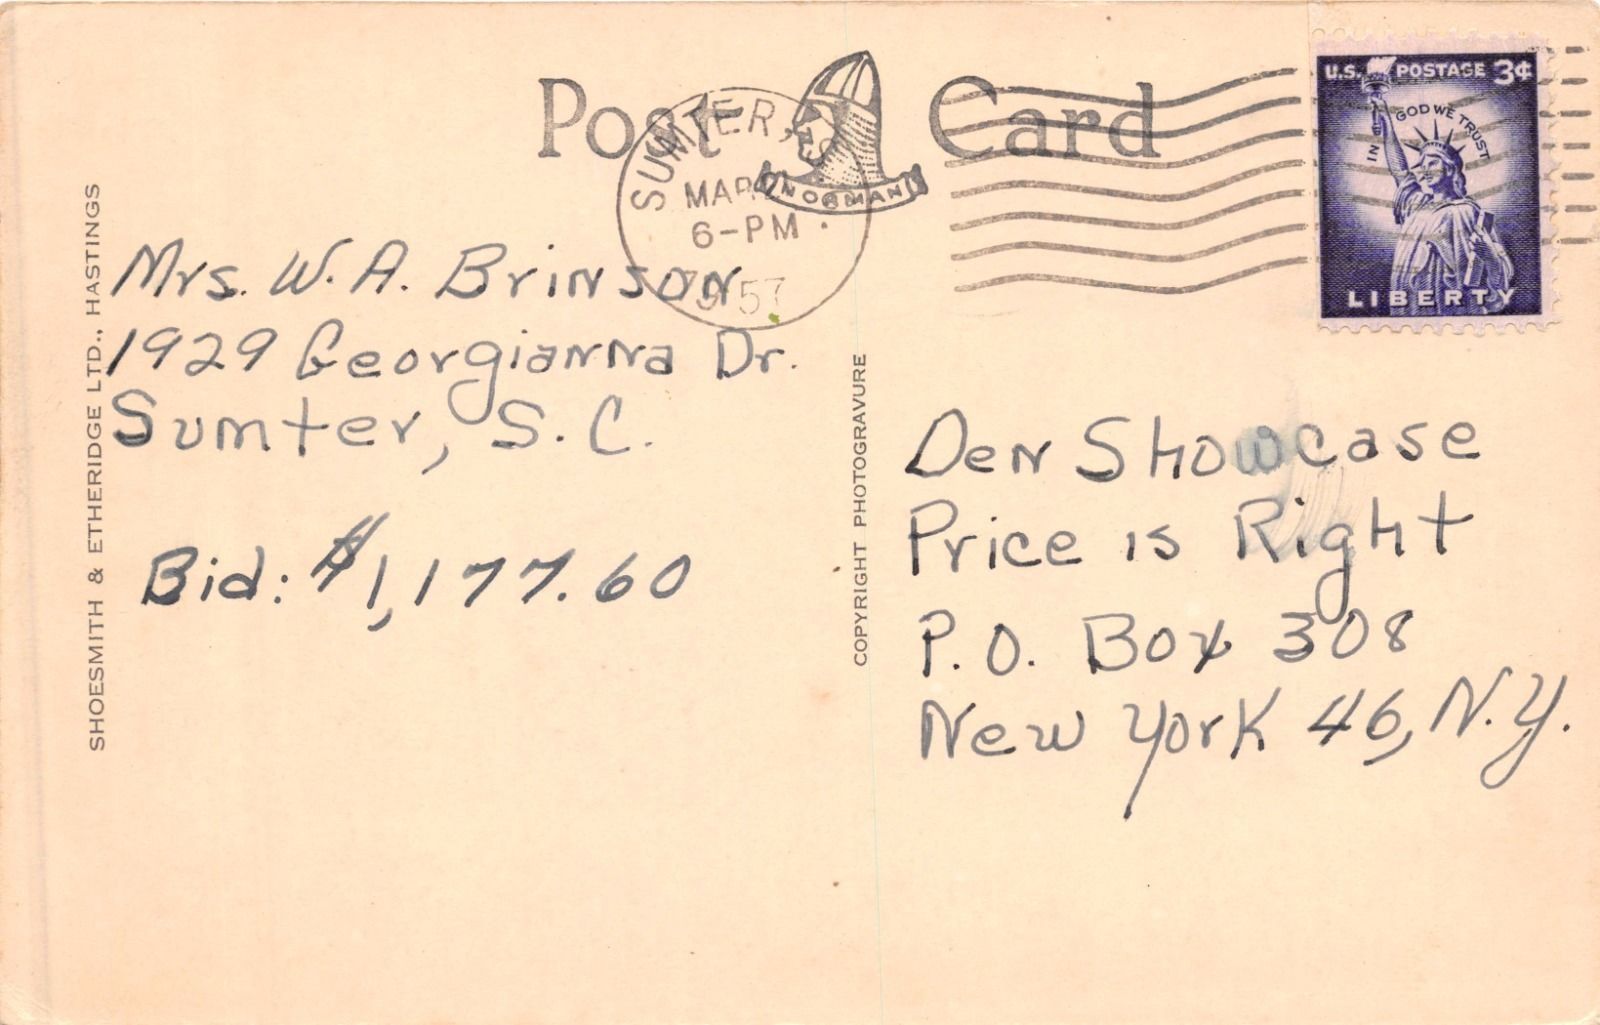 Post Card
NORMAN
SUMTER,
MAR
6-PM
57
U.S. POSTAGE 3¢
IN GOD WE TRUST
LIBERTY
Mrs. W. A. Brinson
1929 Georgianna Dr.
Sumter, S. C.
Bid: $1,177.60
Den Showcase
Price is Right
P. O. Box 308
New York 46, N. Y.
SHOESMITH & ETHERIDGE LTD., HASTINGS
COPYRIGHT PHOTOGRAVURE